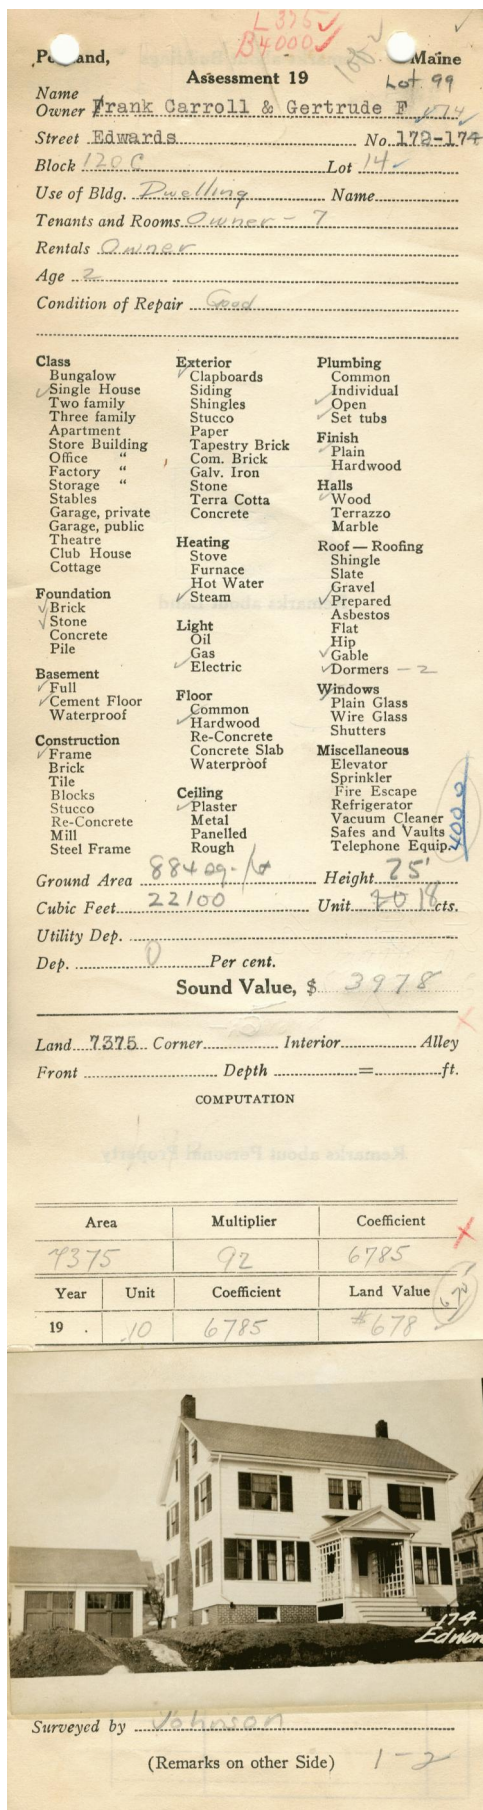 L 375
B 4000
Portland, Maine
Assessment 19
Lot 99
Name
Owner Frank Carroll & Gertrude F
Street Edwards No. 172-174
Block 120C Lot 14
Use of Bldg. Dwelling Name
Tenants and Rooms Owner - 7
Rentals Owner
Age 2
Condition of Repair Good
Class
Bungalow
Single House
Two family
Three family
Apartment
Store Building
Office "
Factory "
Storage "
Stables
Garage, private
Garage, public
Theatre
Club House
Cottage
Foundation
Brick
Stone
Concrete
Pile
Basement
Full
Cement Floor
Waterproof
Construction
Frame
Brick
Tile
Blocks
Stucco
Re-Concrete
Mill
Steel Frame
Exterior
Clapboards
Siding
Shingles
Stucco
Paper
Tapestry Brick
Com. Brick
Galv. Iron
Stone
Terra Cotta
Concrete
Heating
Stove
Furnace
Hot Water
Steam
Light
Oil
Gas
Electric
Floor
Common
Hardwood
Re-Concrete
Concrete Slab
Waterproof
Ceiling
Plaster
Metal
Panelled
Rough
Plumbing
Common
Individual
Open
Set tubs
Finish
Plain
Hardwood
Halls
Wood
Terrazzo
Marble
Roof — Roofing
Shingle
Slate
Gravel
Prepared
Asbestos
Flat
Hip
Gable
Dormers - 2
Windows
Plain Glass
Wire Glass
Shutters
Miscellaneous
Elevator
Sprinkler
Fire Escape
Refrigerator
Vacuum Cleaner
Safes and Vaults
Telephone Equip.
4000
Ground Area 884 sq. ft Height 25'
Cubic Feet 22100 Unit 20 18 cts.
Utility Dep.
Dep. 0 Per cent.
Sound Value, $ 3978
Land 7375 Corner Interior Alley
Front Depth = ft.
COMPUTATION
Remarks about Personal Property
Area Multiplier Coefficient
7375 92 6785
Year Unit Coefficient Land Value
19 . .10 6785 #678
670
174
Edwar
Surveyed by Johnson
(Remarks on other Side) 1-2